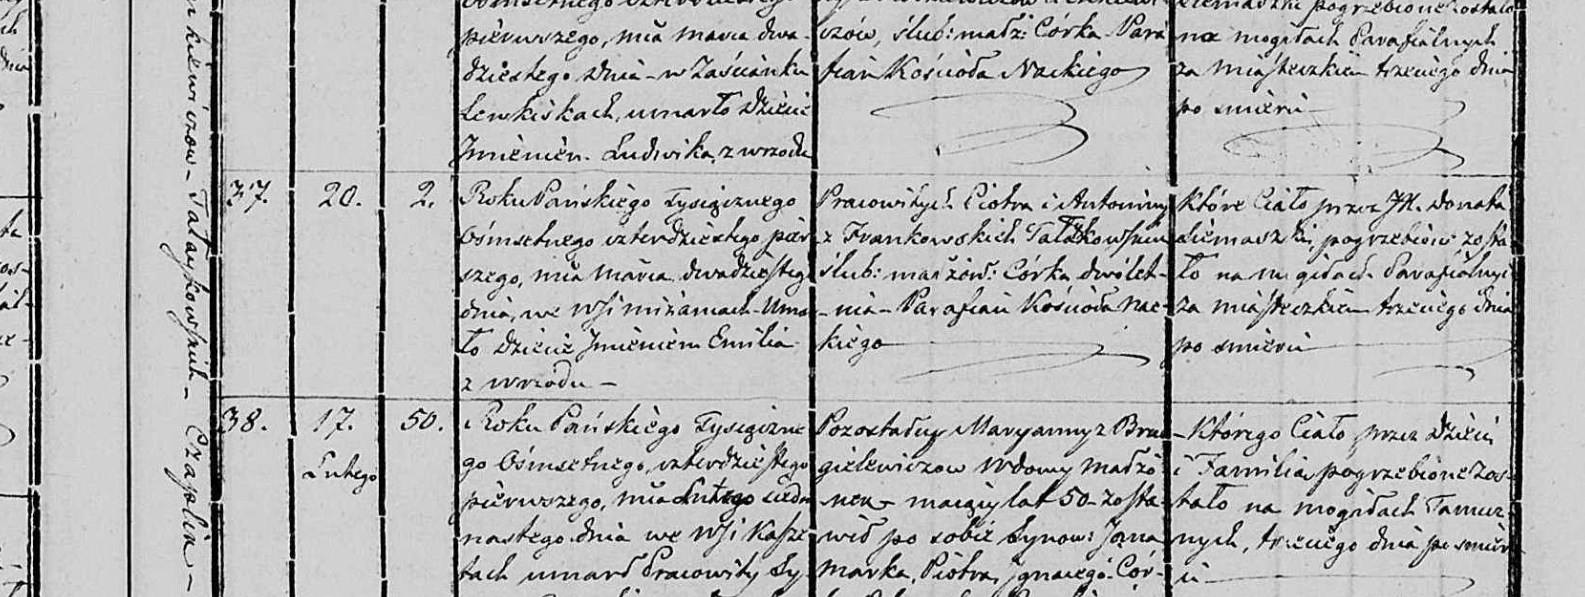 pierwszego, mca marca dwa-
dziestego dnia - w Zaścianku
Lewkiskach, umarło Dziecie
Imieniem Ludwika, z wrzodu
szów, ślub: małż: Córka Para
fian Kościoła Nackiego
na mogiłach Parafialnych
za miasteczkiem trzeciego dnia
po śmierci
37.
20.
2.
Roku Pańskiego Tysiącznego
Ośmsetnego czterdziestego pier
szego, mca marca dwudziesteg
dnia, we Wsi miżaniach Uma
ło Dziecie Imieniem Emilia
z wrzodu -
Pracowitych Piotra i Antoniny
z Frankowskich
ślub: małżów: Córka dwólet-
-nia - Parafian Kościoła Nac-
kiego
Które Ciało przez JX. Donata
Siemaszki pogrzebione zosta
ło na mogiłach Parafialnyc
za miasteczkiem trzeciego dnia
po śmierci
38.
17.
Lutego
50.
Roku Pańskiego Tysiączne
go Ośmsetnego, czterdziestego
pierwszego, mca Lutego siedm
nastego dnia we Wsi Kasze
tach umarł Pracowity Sy-
Pozostałey Maryanny z Bra
gielewiczow Wdowy małżo-
nek - maiący lat 50 - zosta-
wił po sobie Synow: Jana
Marka, Piotra, Ignacego. Cór-
- Którego Ciało przez Dzieci
i Familią pogrzebione zos-
tało na mogiłach Tamecz
nych, trzeciego dnia po śmier
ci
Czaplin -